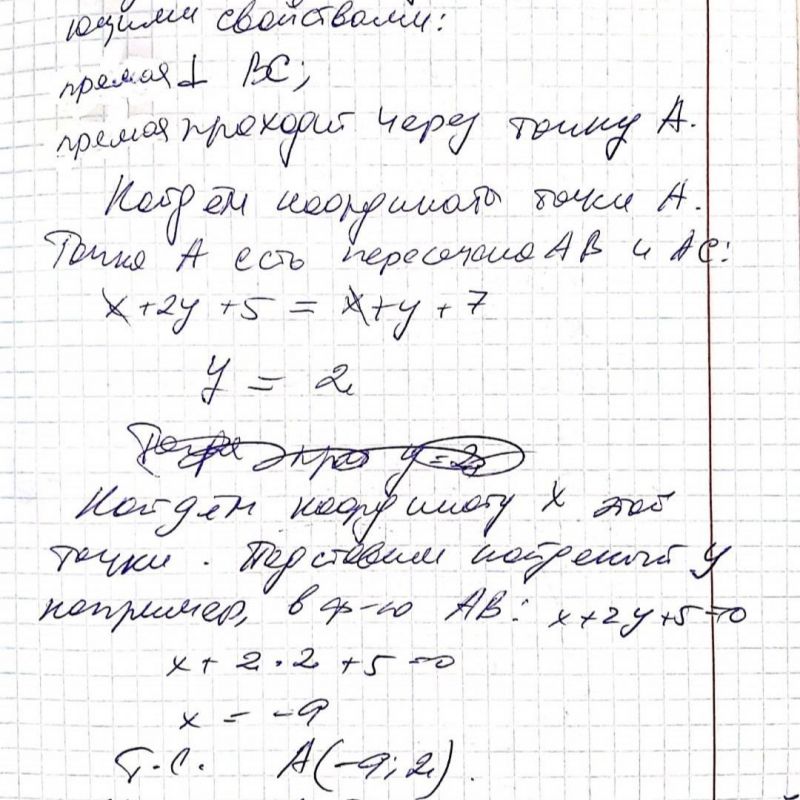 ющими свойствами:
прямая ⊥ BC;
прямая проходит через точку A.
Найдём координаты точки A.
Точка A есть пересечение AB и AC:
x + 2y + 5 = x + y + 7
y = 2
y = 2
Найдём координату x этой
точки. Подставим найденый y
например, в ф-ю AB: x+2y+5=0
x + 2·2 + 5 = 0
x = -9
Т.С. A(-9; 2).